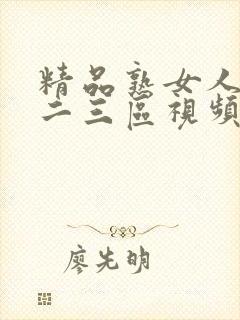 精品熟女人
二三區視頻
廖先明